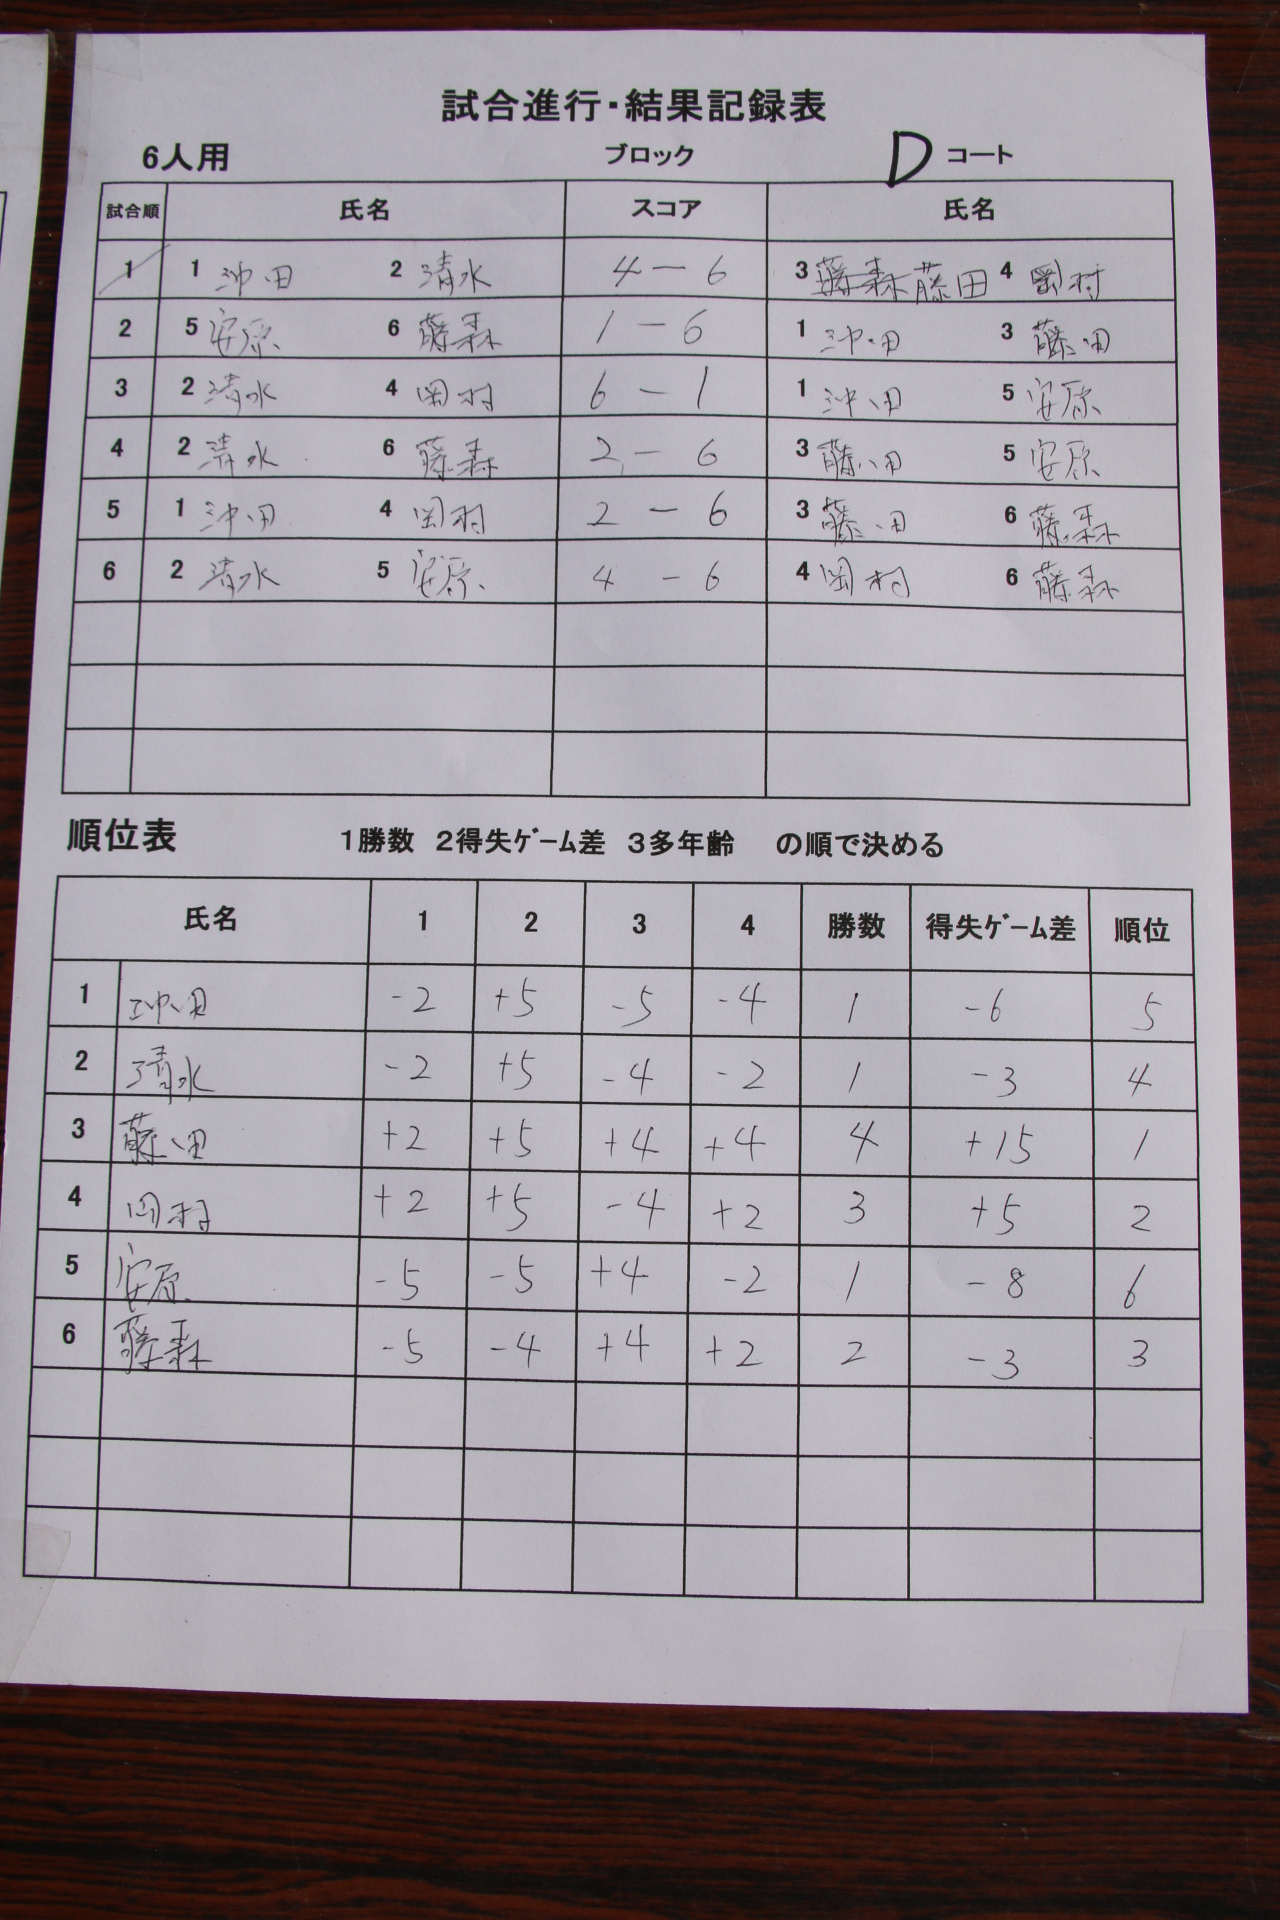 試合進行・結果記録表
6人用 ブロック D コート
試合順 氏名 スコア 氏名
1 1 沖田 2 清水 4 - 6 3 藤森 藤田 4 岡村
2 5 安原 6 藤森 1 - 6 1 沖田 3 藤田
3 2 清水 4 岡村 6 - 1 1 沖田 5 安原
4 2 清水 6 藤森 2 - 6 3 藤田 5 安原
5 1 沖田 4 岡村 2 - 6 3 藤田 6 藤森
6 2 清水 5 安原 4 - 6 4 岡村 6 藤森
順位表 1勝数 2得失ゲーム差 3多年齢 の順で決める
氏名 1 2 3 4 勝数 得失ゲーム差 順位
1 沖田 -2 +5 -5 -4 1 -6 5
2 清水 -2 +5 -4 -2 1 -3 4
3 藤田 +2 +5 +4 +4 4 +15 1
4 岡村 +2 +5 -4 +2 3 +5 2
5 安原 -5 -5 +4 -2 1 -8 6
6 藤森 -5 -4 +4 +2 2 -3 3